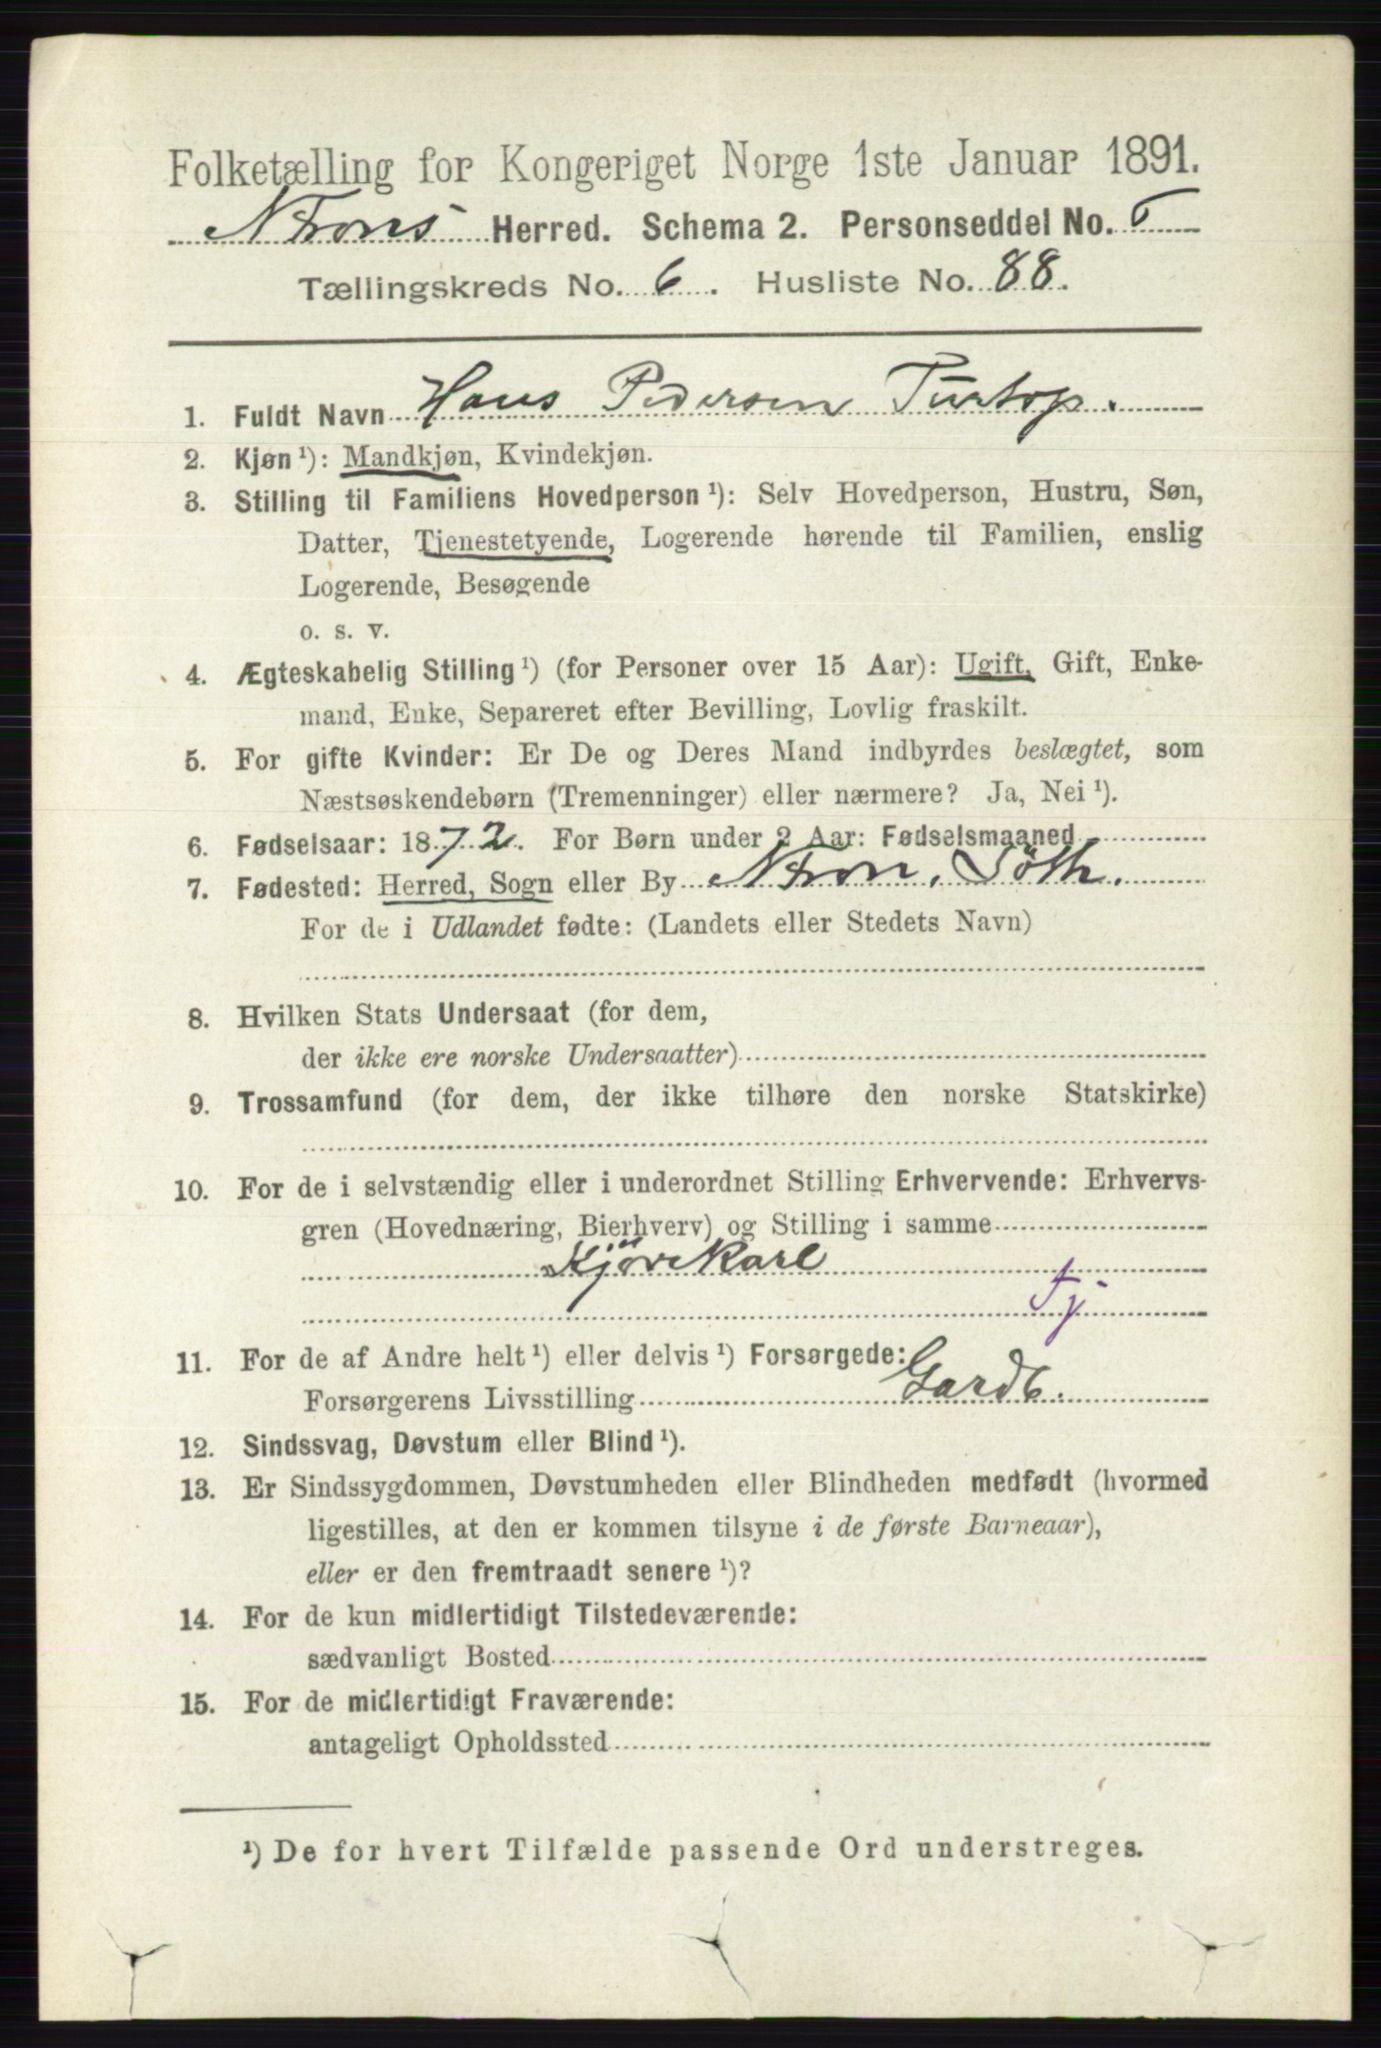 Folketælling for Kongeriget Norge 1ste Januar 1891.
N Frons Herred. Schema 2. Personseddel No. 5
Tællingskreds No. 6. Husliste No. 88.
1. Fuldt Navn Hans Pedersen Turtop.
2. Kjøn ¹): Mandkjøn, Kvindekjøn.
3. Stilling til Familiens Hovedperson ¹): Selv Hovedperson, Hustru, Søn,
Datter, Tjenestetyende, Logerende hørende til Familien, enslig
Logerende, Besøgende
o. s. v.
4. Ægteskabelig Stilling ¹) (for Personer over 15 Aar): Ugift, Gift, Enke-
mand, Enke, Separeret efter Bevilling, Lovlig fraskilt.
5. For gifte Kvinder: Er De og Deres Mand indbyrdes beslægtet, som
Næstsøskendebørn (Tremenninger) eller nærmere? Ja, Nei ¹).
6. Fødselsaar: 1872. For Børn under 2 Aar: Fødselsmaaned
7. Fødested: Herred, Sogn eller By N Fron, Söth.
For de i Udlandet fødte: (Landets eller Stedets Navn)
8. Hvilken Stats Undersaat (for dem,
der ikke ere norske Undersaatter)
9. Trossamfund (for dem, der ikke tilhøre den norske Statskirke)
10. For de i selvstændig eller i underordnet Stilling Erhvervende: Erhvervs-
gren (Hovednæring, Bierhverv) og Stilling i samme
Kjørekarl
tj
11. For de af Andre helt ¹) eller delvis ¹) Forsørgede:
Forsørgerens Livsstilling Gardb.
12. Sindssvag, Døvstum eller Blind ¹).
13. Er Sindssygdommen, Døvstumheden eller Blindheden medfødt (hvormed
ligestilles, at den er kommen tilsyne i de første Barneaar),
eller er den fremtraadt senere ¹)?
14. For de kun midlertidigt Tilstedeværende:
sædvanligt Bosted
15. For de midlertidigt Fraværende:
antageligt Opholdssted
¹) De for hvert Tilfælde passende Ord understreges.